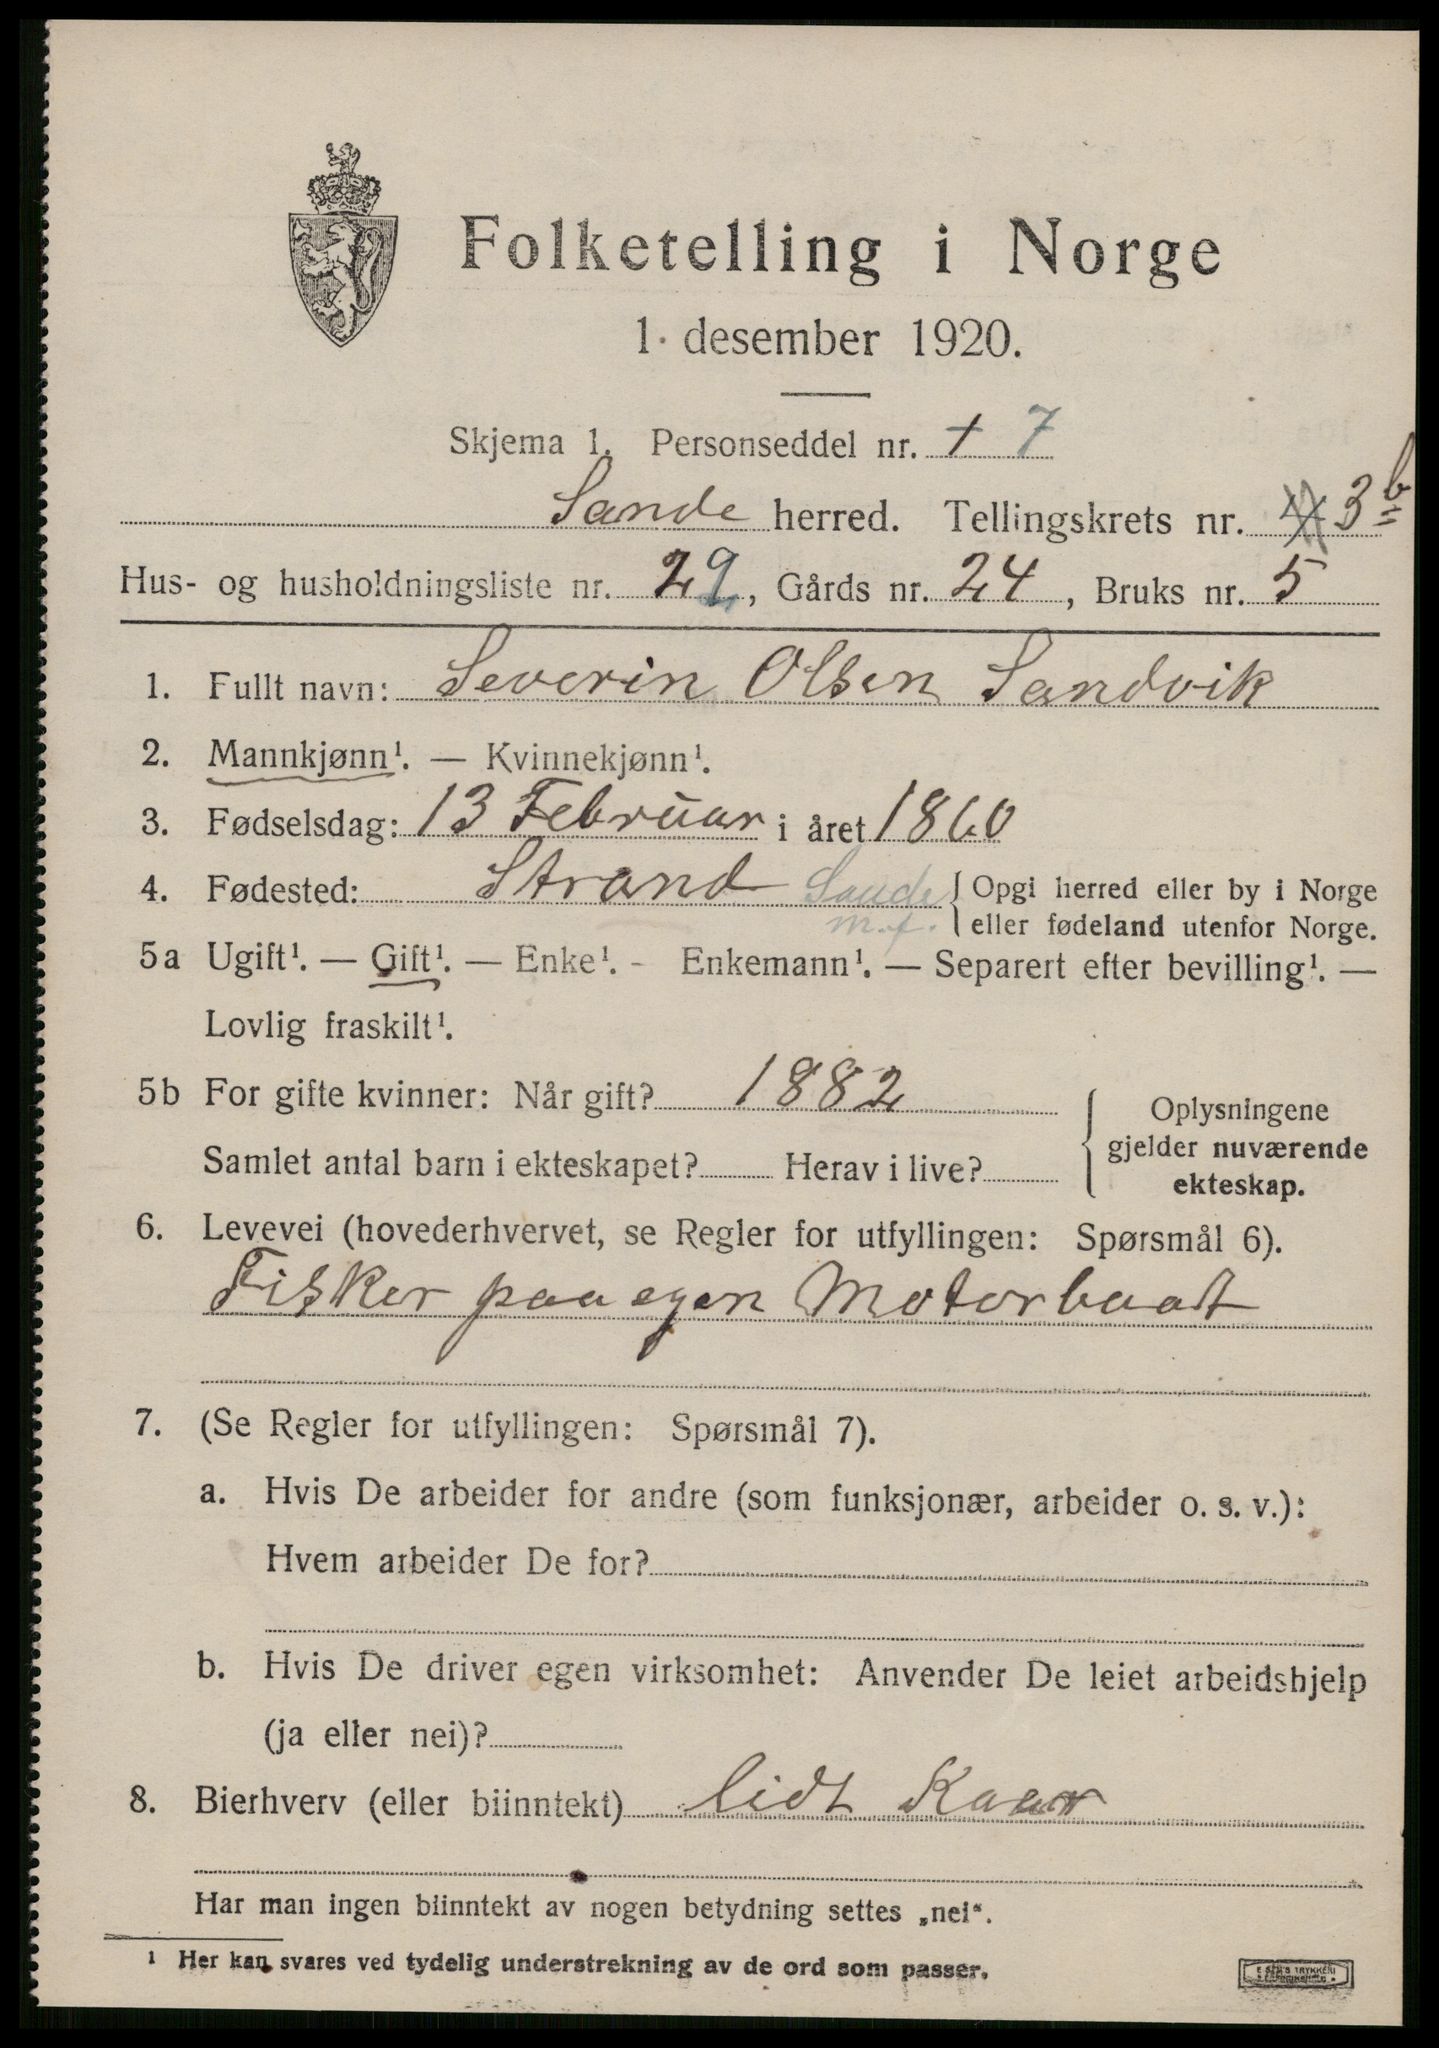 Folketelling i Norge
1. desember 1920.
Skjema 1. Personseddel nr. + 7
Sande herred. Tellingskrets nr. 3 b
Hus- og husholdningsliste nr. 29, Gårds nr. 24, Bruks nr. 5
1. Fullt navn: Severin Olsen Sandvik
2. Mannkjønn¹. — Kvinnekjønn¹.
3. Fødselsdag: 13 Februar i året 1860
4. Fødested: Strand Sande { Opgi herred eller by i Norge
m.f. eller fødeland utenfor Norge.
5a Ugift¹. — Gift¹. — Enke¹. - Enkemann¹. — Separert efter bevilling¹. —
Lovlig fraskilt¹.
5b For gifte kvinner: Når gift? 1882 Oplysningene
gjelder nuværende
Samlet antal barn i ekteskapet? Herav i live?
ekteskap.
6. Levevei (hovederhvervet, se Regler for utfyllingen: Spørsmål 6).
Fisker paa egen Motorbaat
7. (Se Regler for utfyllingen: Spørsmål 7).
a. Hvis De arbeider for andre (som funksjonær, arbeider o. s. v.):
Hvem arbeider De for?
b. Hvis De driver egen virksomhet: Anvender De leiet arbeidshjelp
(ja eller nei)?
8. Bierhverv (eller biinntekt) lidt
Har man ingen biinntekt av nogen betydning settes „nei“.
¹ Her kan svares ved tydelig understrekning av de ord som passer.